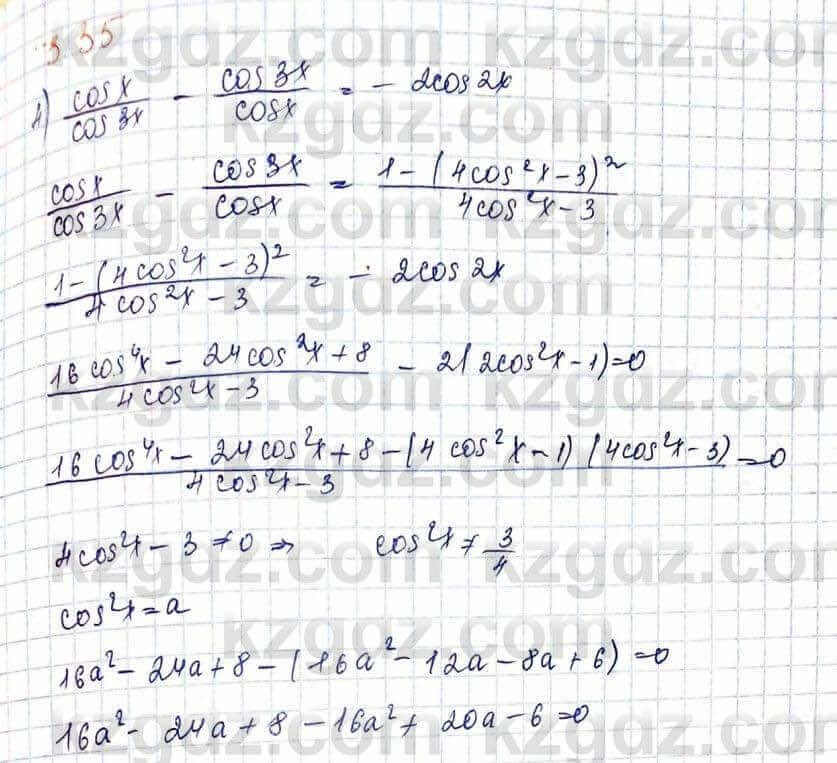 335
1) cos x / cos 3x − cos 3x / cos x = − 2cos 2x
cos x / cos 3x − cos 3x / cos x = 1 − (4cos²x − 3)² / 4cos²x − 3
1 − (4cos²x − 3)² / 4cos²x − 3 = − 2cos 2x
16 cos⁴x − 24cos²x + 8 / 4cos²x − 3 − 2(2cos²x − 1) = 0
16 cos⁴x − 24cos²x + 8 − (4cos²x − 1)(4cos²x − 3) / 4cos²x − 3 = 0
4cos²x − 3 ≠ 0 ⇒ cos²x ≠ 3/4
cos²x = a
16a² − 24a + 8 − (16a² − 12a − 8a + 6) = 0
16a² − 24a + 8 − 16a² + 20a − 6 = 0
kzgdz.com